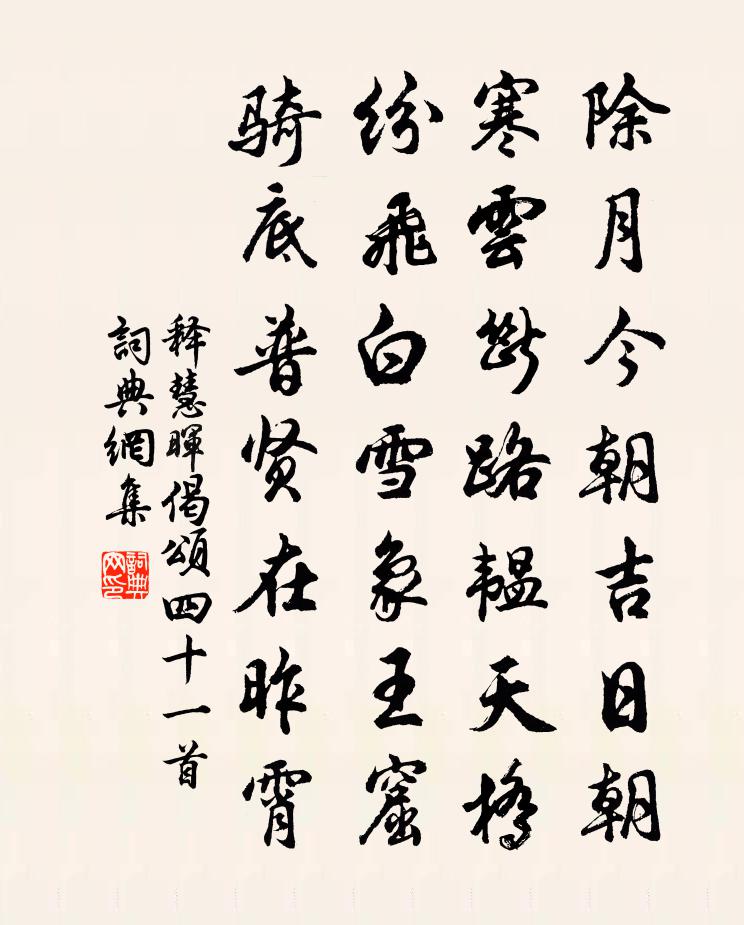 除月今朝吉日朝
寒雲断路韞天橋
纷飛白雪象王窟
骑底普贤在昨霄
释慧暉偈頌四十一首
詞典網集
詞典网印